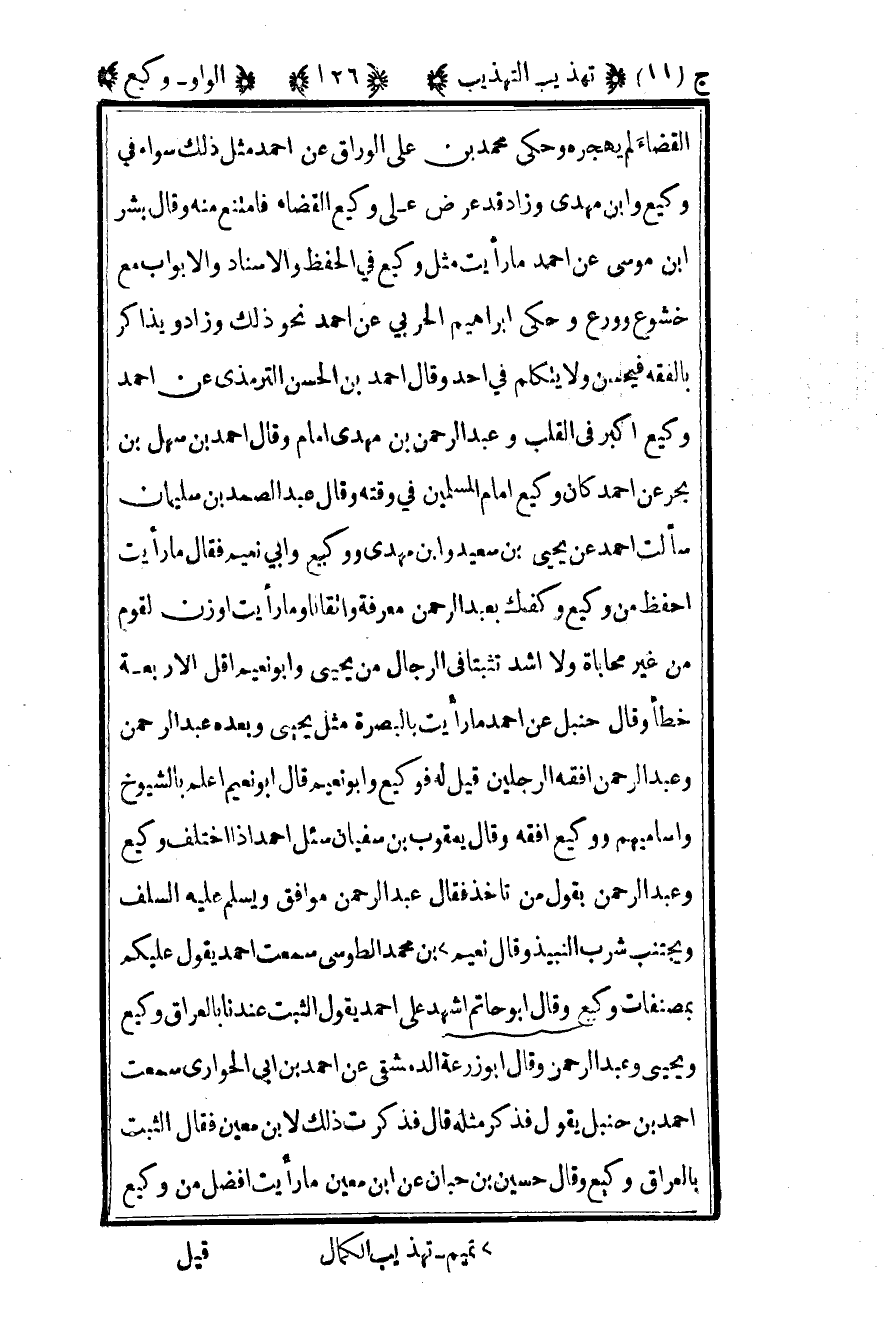 ج (١١) تهذيب التهذيب ١٢٦ الواو - وكيع
القضاء لم يهجره وحكى محمد بن على الوراق عن احمد مثل ذلك سواء في
وكيع وابن مهدى وزاد قد عرض على وكيع القضاء فامتنع منه وقال بشر
ابن موسى عن احمد ما رأيت مثل وكيع في الحفظ والاسناد والابواب مع
خشوع وورع وحكى ابراهيم الحربي عن احمد نحو ذلك وزاد ويذاكر
بالفقه فيحسن ولا يتكلم في احد وقال احمد بن الحسن الترمذى عن احمد
وكيع اكبر فى القلب وعبد الرحمن بن مهدى امام وقال احمد بن سهل بن
بحر عن احمد كان وكيع امام المسلمين في وقته وقال عبد الصمد بن سليمان
سألت احمد عن يحيى بن سعيد وابن مهدى ووكيع وابي نعيم فقال ما رأيت
احفظ من وكيع وكفك بعبد الرحمن معرفة واتقانا وما رأيت اوزن لقوم
من غير محاباة ولا اشد تثبتا فى الرجال من يحيى وابو نعيم اقل الاربعة
خطأ وقال حنبل عن احمد ما رأيت بالبصرة مثل يحيى وبعده عبد الرحمن
وعبد الرحمن افقه الرجلين قيل له فوكيع وابو نعيم قال ابو نعيم اعلم بالشيوخ
واساميهم ووكيع افقه وقال يعقوب بن سفيان سئل احمد اذا اختلف وكيع
وعبد الرحمن بقول من تاخذ فقال عبد الرحمن موافق ويسلم عليه السلف
ويجتنب شرب النبيذ وقال نعيم > بن محمد الطوسى سمعت احمد يقول عليكم
بمصنفات وكيع وقال ابو حاتم اشهد على احمد يقول الثبت عندنا بالعراق وكيع
ويحيى وعبد الرحمن وقال ابو زرعة الدمشقى عن احمد بن ابى الحوارى سمعت
احمد بن حنبل يقول فذكر مثله قال فذكرت ذلك لابن معين فقال الثبت
بالعراق وكيع وقال حسين بن حبان عن ابن معين ما رأيت افضل من وكيع
> تميم - تهذيب الكمال
قيل